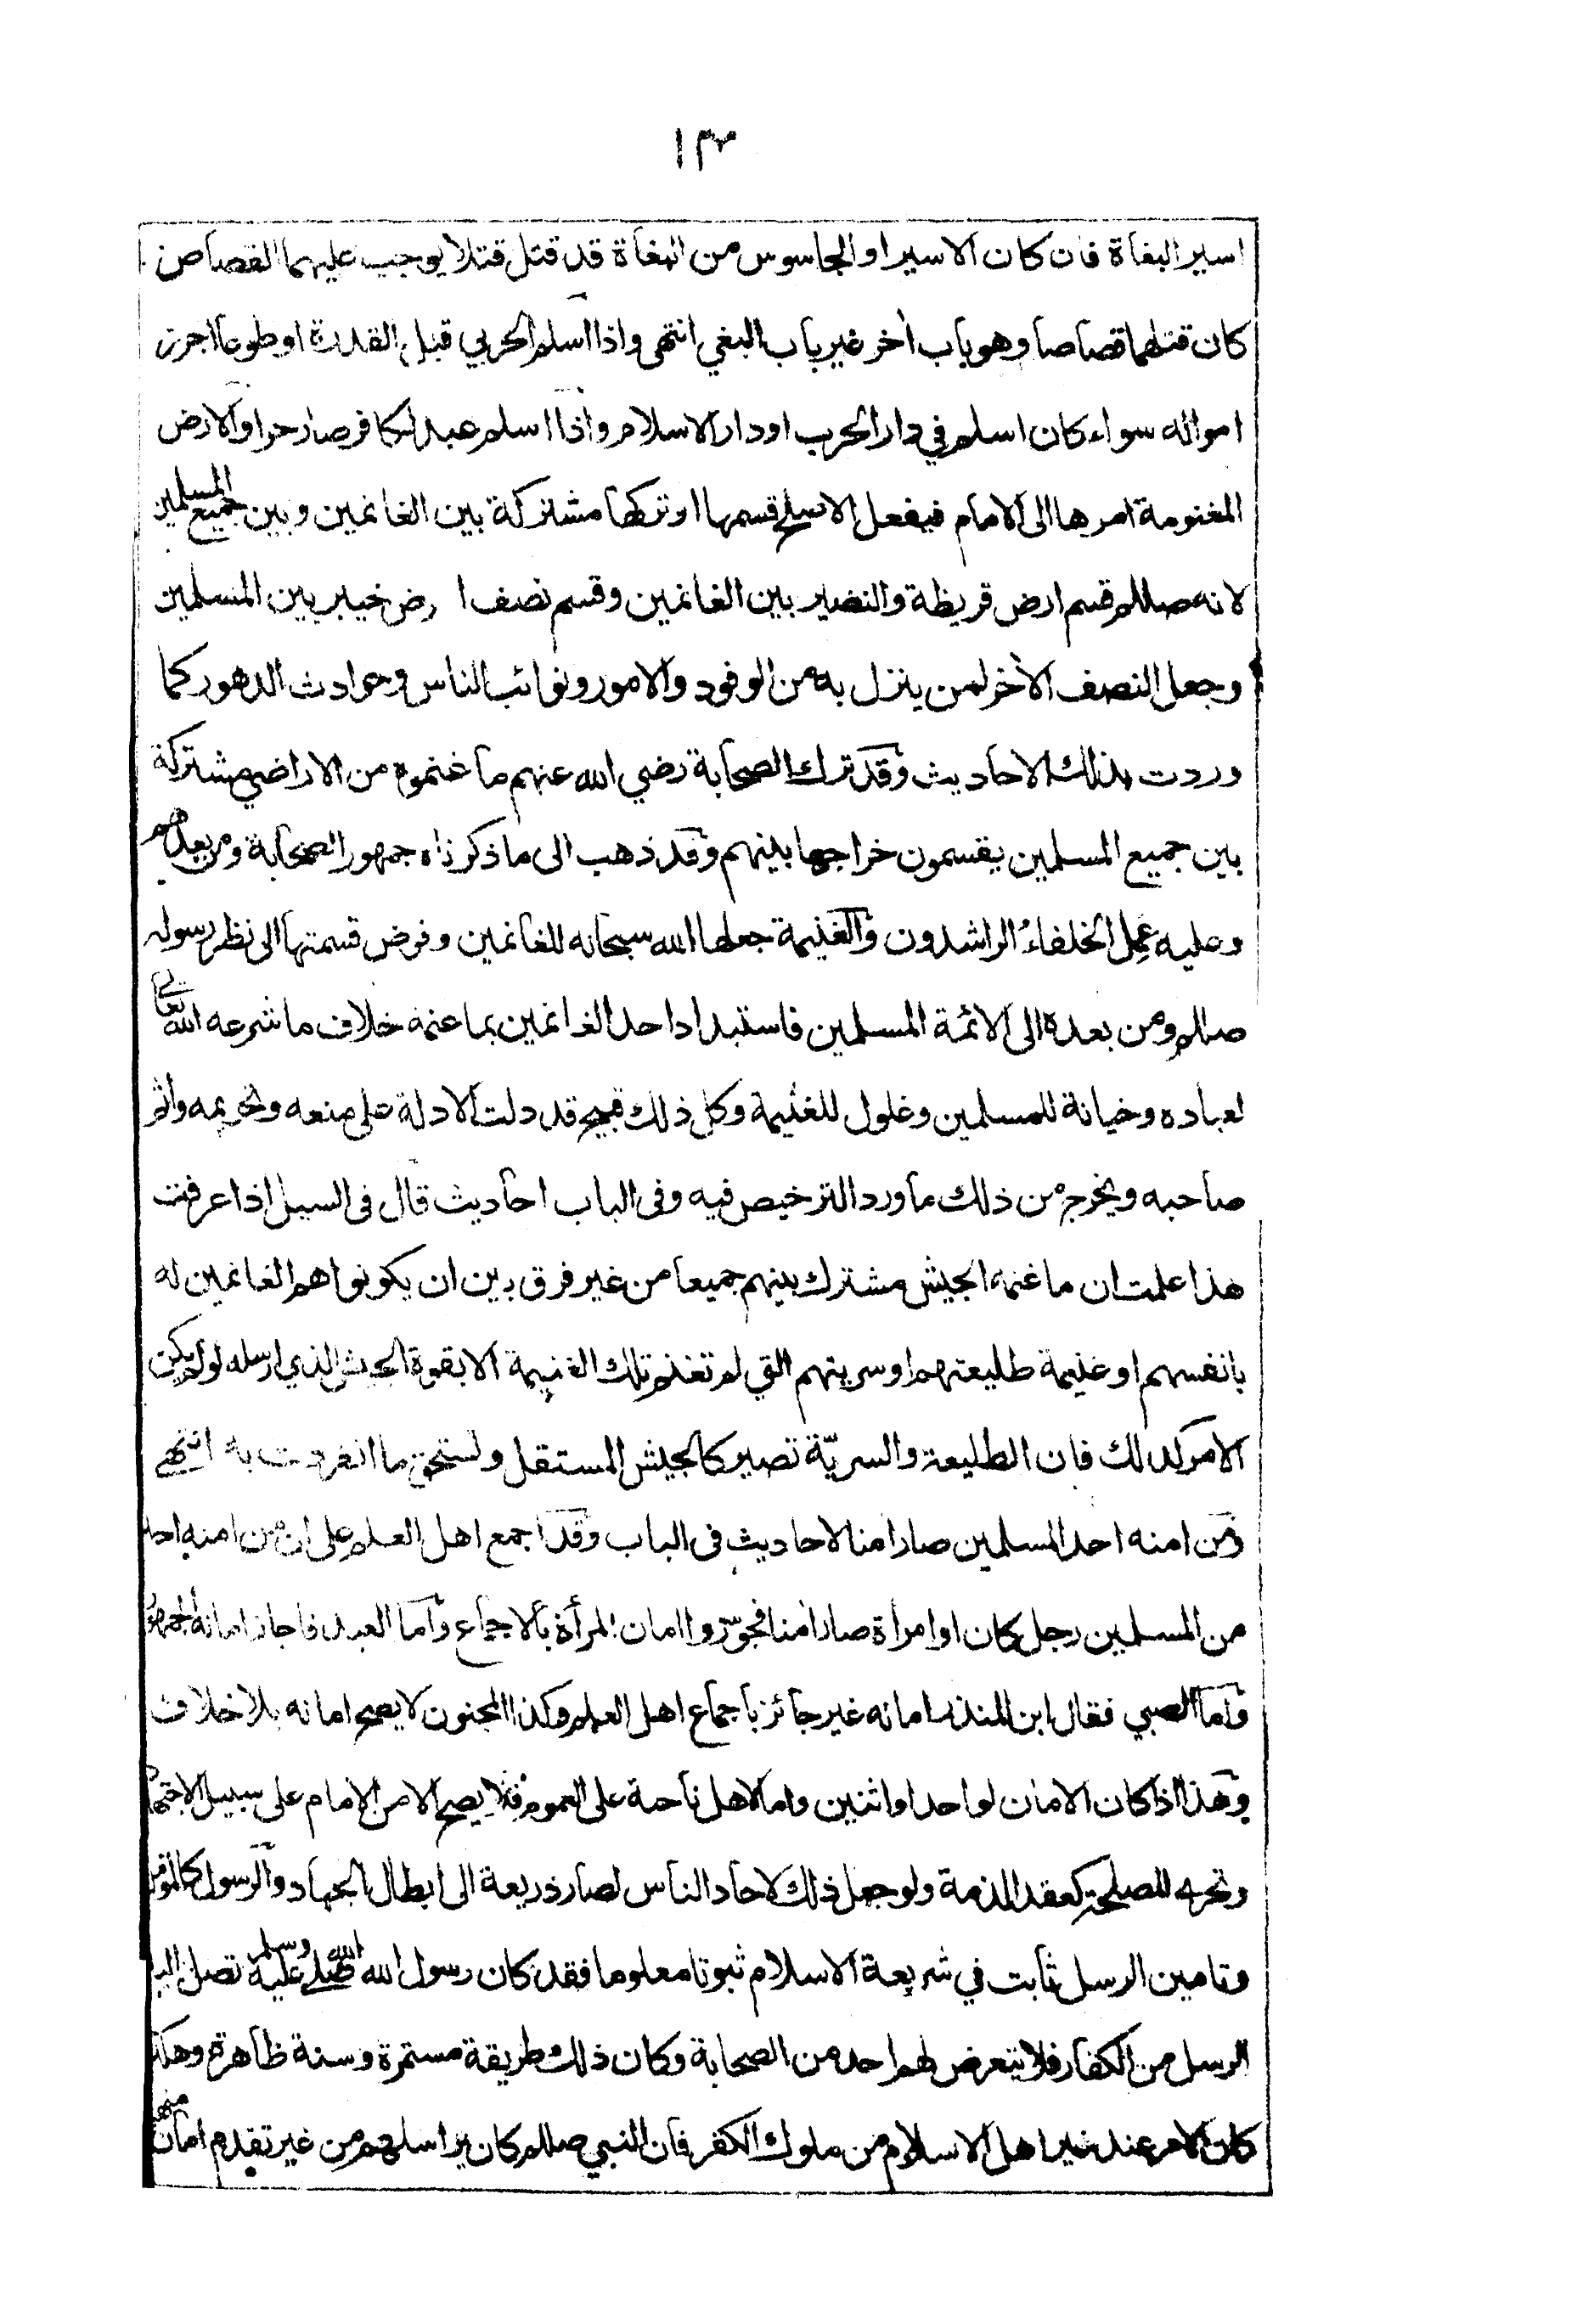 ١٣
اسير البغاة فان كان الاسير او الجاسوس من البغاة قد قتل قتلا يوجب عليهما القصاص
كان قتلهما قصاصا وهو باب اخر غير باب البغي انتهى واذا اسلم الحربي قبل القدرة او طوعا احرز
امواله سواء كان اسلم في دار الحرب او دار الاسلام واذا اسلم عبد الكافر صار حرا والارض
المغنومة امرها الى الامام فيفعل الاصلح قسمها او تركها مشتركة بين الغانمين وبين جميع المسلمين
لانه صللم قسم ارض قريظة والنضير بين الغانمين وقسم نصف ارض خيبر بين المسلمين
وجعل النصف الأخر لمن ينزل به من الوفود والامور ونوائب الناس وحوادث الدهور كما
وردت بذلك الاحاديث وقد ترك الصحابة رضي الله عنهم ما غنموه من الاراضي مشتركة
بين جميع المسلمين يقسمون خراجها بينهم وقد ذهب الى ما ذكرناه جمهور الصحابة ومن بعدهم
وعليه عمل الخلفاء الراشدون والغنيمة جعلها الله سبحانه للغانمين وفرض قسمتها الى نظر رسوله
صللم ومن بعده الى الائمة المسلمين فاستبداد احد الغانمين بما غنمه خلاف ما شرعه الله تعالى
لعباده وخيانة للمسلمين وغلول للغنيمة وكل ذلك قبيح قد دلت الادلة على منعه وتحريمه واثم
صاحبه ويخرج من ذلك ما ورد الترخيص فيه وفى الباب احاديث قال فى السيل اذا عرفت
هذا علمت ان ما غنمه الجيش مشترك بينهم جميعا من غير فرق بين ان يكونوا هم الغانمين له
بانفسهم او غنيمة طليعتهم او سريتهم التي لم تغنم تلك الغنيمة الا بقوة الجيش الذي ارسله لو لم يكن
الامر كذلك فان الطليعة والسريّة تصير كالجيش المستقل وتستحق ما انفردت به انتهى
ومن امنه احد المسلمين صار امنا لاحاديث فى الباب وقد اجمع اهل العلم على ان من امنه احد
من المسلمين رجل كان او امرأة صار أمنا فجوّزوا امان المرأة بألاجماع وأما العبد فاجاز امانه الجمهور
وأما الصبي فقال ابن المنذر امانه غير جائز بأجماع اهل العلم وكذا المجنون لا يصح امانه بلا خلاف
وهذا اذا كان الامان لواحد او اثنين واما لاهل ناحية على العموم فلا يصح الا من الامام على سبيل الاجتهاد
وتحري للصلحة كعقد الذمة ولو جعل ذلك لاحاد الناس لصار ذريعة الى ابطال الجهاد والرسول كالمؤمن
وتامين الرسل ثابت في شريعة الاسلام ثبوتا معلوما فقد كان رسول الله صلى الله عليه وسلم تصل اليه
الرسل من الكفار فلا يتعرض لهم احد من الصحابة وكان ذلك طريقة مستمرة وسنة ظاهرة وهكذا
كان الامر عند غير اهل الاسلام من ملوك الكفر فان النبي صللم كان يراسلهم من غير تقدم امان منهم